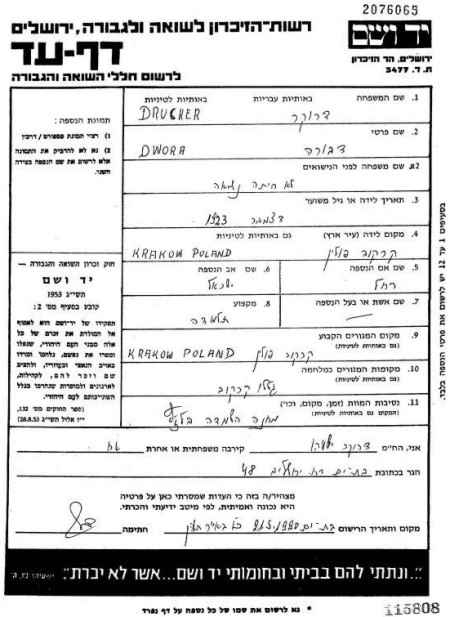 2076065
רשות-הזיכרון לשואה ולגבורה, ירושלים
יד ושם
דף-עד
ירושלים, הר הזיכרון
ת. ד. 3477
לרשום חללי השואה והגבורה
תמונת הנספה:
1) רצוי תמונת פספורט / דרכון
2) נא לא להדביק את התמונה
אלא לרשום את שם הנספה בצידה
השני.
1. שם המשפחה באותיות עבריות באותיות לטיניות
דרוקר DRUCKER
2. שם פרטי
דבורה DWORA
2א. שם משפחה לפני הנישואים
לא היתה נשואה
3. תאריך לידה או גיל משוער
דצמבר 1923
4. מקום לידה (עיר ארץ) גם באותיות לטיניות
קרקוב פולין KRAKOW POLAND
5. שם אם הנספה
רחל
6. שם אב הנספה
ישראל
7. שם אשת או בעל הנספה
8. מקצוע
תלמדה
9. מקום המגורים הקבוע
(גם באותיות לטיניות)
קרקוב פולין KRAKOW POLAND
10. מקומות המגורים במלחמה
(גם באותיות לטיניות)
קרקוב
11. נסיבות המוות (זמן, מקום, וכו')
(המקום גם באותיות לטיניות)
מחנה השמדה
חוק זכרון השואה והגבורה —
יד ושם
תשי"ג 1953
קובע בסעיף מס' 2:
תפקידו של יד-ושם הוא לאסוף
אל המולדת את זכרם של כל
אלה מבני העם היהודי, שנפלו
ומסרו את נפשם, נלחמו ומרדו
באויב הנאצי ובעוזריו, ולהציב
שם וזכר להם, לקהילות,
לארגונים ולמוסדות שנחרבו בגלל
השתייכותם לעם היהודי.
(ספר החוקים מס' 132,
י"ז אלול תשי"ג (28.8.53)
בסעיפים 1 עד 12 יש לרשום את פרטי הנספה בלבד.
אני, הח"מ דרוקר קירבה משפחתית או אחרת אח
הגר בכתובת בת-ים רח' 48
מצהיר/ה בזה כי העדות שמסרתי כאן על פרטיה
היא נכונה ואמיתית, לפי מיטב ידיעתי והכרתי.
מקום ותאריך הרישום בת-ים חתימה
"...ונתתי להם בביתי ובחומותי יד ושם...אשר לא יכרת":
* נא לרשום את שמו של כל נספה על דף נפרד
115808